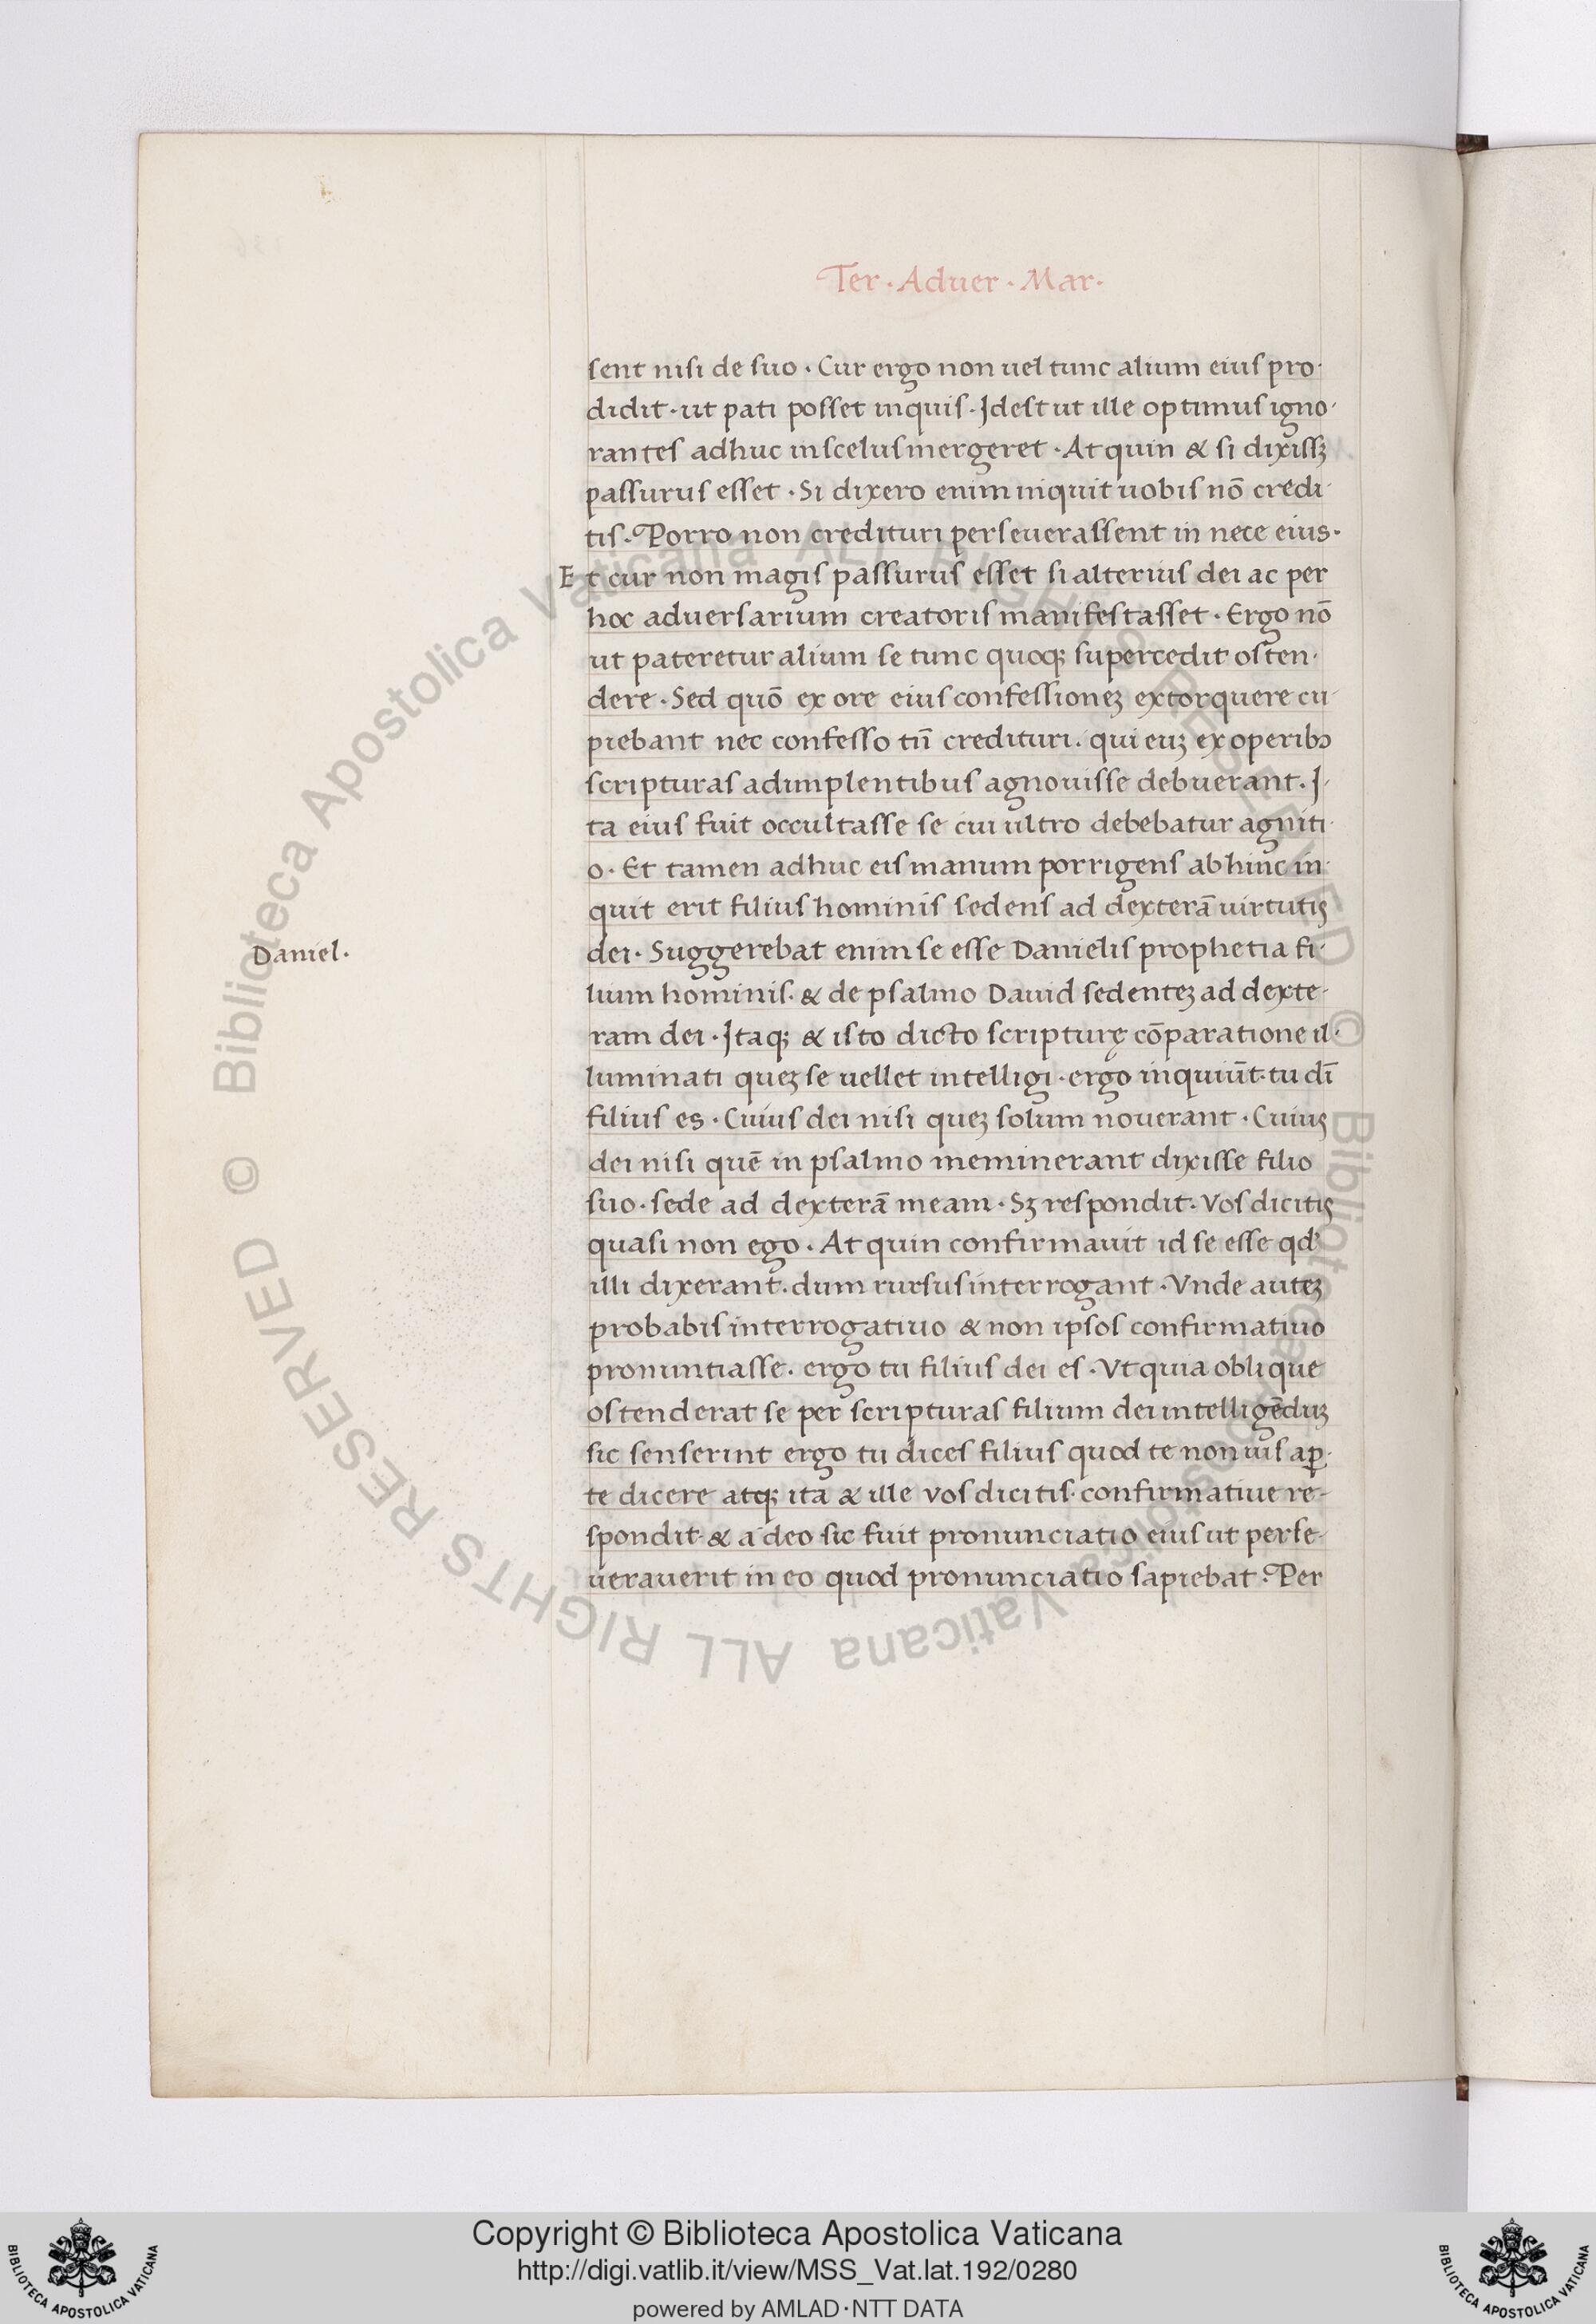 Ter · Aduer · Mar ·
sent nisi de suo · Cur ergo non uel tunc alium eius pro·
didit · ut pati posset inquis · Idest ut ille optimus igno·
rantes adhuc in scelus mergeret · At quin & si dixissꝫ
passurus esset · Si dixero enim inquit uobis nō credi·
tis · Porro non credituri perseuerassent in nece eius ·
Et cur non magis passurus esset si alterius dei ac per
hoc aduersarium creatoris manifestasset · Ergo nō
ut pateretur alium se tunc quoqꝫ supercedit osten·
dere · Sed quō ex ore eius confessioneꝫ extorquere cu·
piebant nec confesso tn̄ credituri · qui euꝫ ex operibꝫ
scripturas adimplentibus agnouisse debuerant · I·
ta eius fuit occultasse se cui ultro debebatur agniti·
o · Et tamen adhuc eis manum porrigens abhinc in·
quit erit filius hominis sedens ad dexterā uirtutis
Daniel ·
dei · Suggerebat enim se esse Danielis prophetia fi·
lium hominis · & de psalmo Dauid sedenteꝫ ad dexte·
ram dei · Itaqꝫ & isto dicto scripturę cōparatione il·
luminati queꝫ se uellet intelligi · ergo inquiūt · tu dī
filius es · Cuius dei nisi queꝫ solum nouerant · Cuius
dei nisi quē in psalmo meminerant dixisse filio
suo · sede ad dexterā meam · Sꝫ respondit · Vos dicitis
quasi non ego · At quin confirmauit id se esse qđ
illi dixerant · dum rursus interrogant · Vnde auteꝫ
probabis interrogatiuo & non ipsos confirmatiuo
pronuntiasse · ergo tu filius dei es · Vt quia oblique
ostenderat se per scripturas filium dei intelligēduꝫ
sic senserint ergo tu dices filius quod te non uis aꝑ·
te dicere atqꝫ ita & ille vos dicitis · confirmatiue re·
spondit · & a deo sic fuit pronunciatio eius ut perse·
uerauerit in eo quod pronunciatio sapiebat · Per
© Biblioteca Apostolica Vaticana ALL RIGHTS RESERVED © Biblioteca Apostolica Vaticana ALL RIGHTS RESERVED
Copyright © Biblioteca Apostolica Vaticana
http://digi.vatlib.it/view/MSS_Vat.lat.192/0280
powered by AMLAD·NTT DATA
BIBLIOTECA APOSTOLICA VATICANA
BIBLIOTECA APOSTOLICA VATICANA